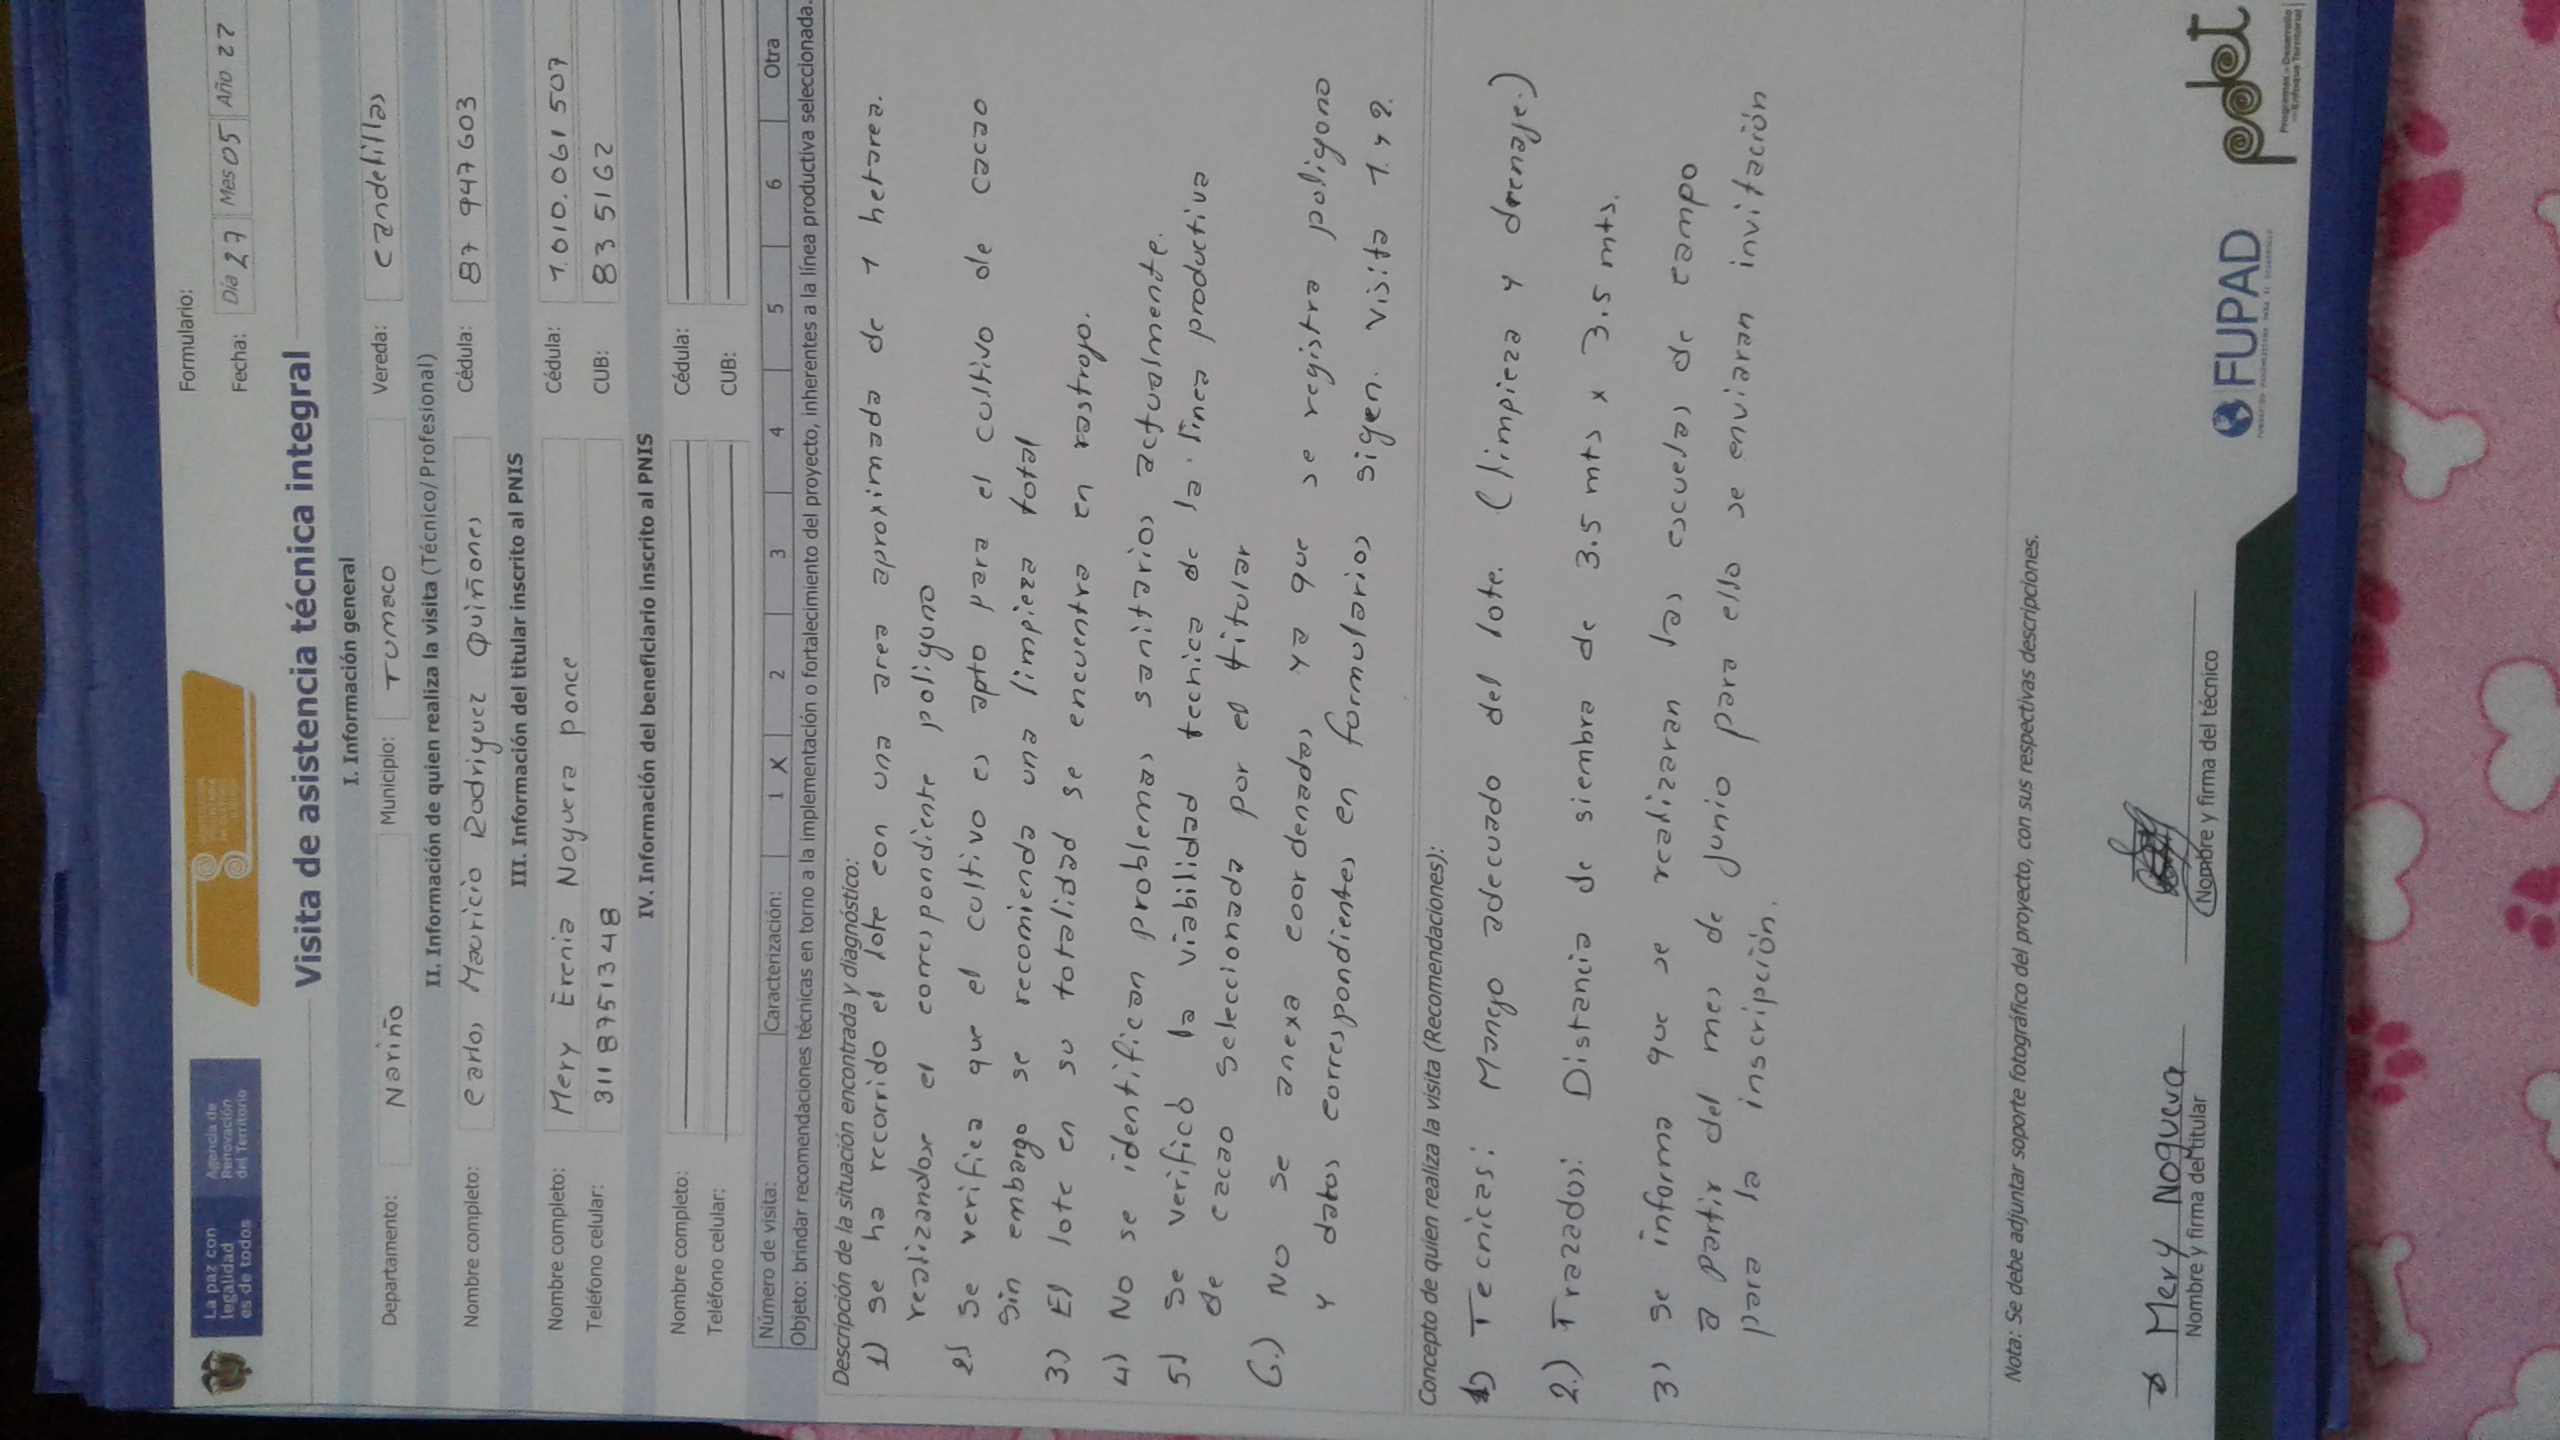 La paz con
legalidad
es de todos
Agencia de
Renovación
del Territorio
Formulario:
Fecha: Día 27 Mes 05 Año 22
Visita de asistencia técnica integral
I. Información general
Departamento: Nariño Municipio: Tumaco Vereda: candelillas
II. Información de quien realiza la visita (Técnico/Profesional)
Nombre completo: carlos Mauricio Rodriguez Quiñones Cédula: 87 947 603
III. Información del titular inscrito al PNIS
Nombre completo: Mery Erenia Noguera ponce Cédula: 1.010.061 507
Teléfono celular: 311 8751348 CUB: 83 5162
IV. Información del beneficiario inscrito al PNIS
Nombre completo: Cédula:
Teléfono celular: CUB:
Número de visita: Caracterización: 1 X 2 3 4 5 6 Otra
Objeto: brindar recomendaciones técnicas en torno a la implementación o fortalecimiento del proyecto, inherentes a la línea productiva seleccionada.
Descripción de la situación encontrada y diagnóstico:
1) se ha recorrido el lote con una area aproximada de 1 hetarea.
realizandose el correspondiente poligono
2) se verifica que el cultivo es apto para el cultivo de cacao
sin embargo se recomienda una limpieza total
3.) El lote en su totalidad se encuentra en rastrojo.
4) No se identifican problemas sanitarios actualmente.
5) se verificó la viabilidad tecnica de la línea productiva
de cacao seleccionada por el titular
6.) No se anexa coordenadas ya que se registra poligono
y datos correspondientes en formularios sigen. visita 1 y 2.
Concepto de quien realiza la visita (Recomendaciones):
1) Tecnicas: Manejo adecuado del lote. (limpieza y drenaje.)
2.) Trazados: Distancia de siembra de 3.5 mts x 3.5 mts.
3) se informa que se realizaran las escuelas de campo
a partir del mes de junio para ello se enviaran invitación
para la inscripción.
Nota: Se debe adjuntar soporte fotográfico del proyecto, con sus respectivas descripciones.
Mery Noguera
Nombre y firma del titular
Nombre y firma del técnico
FUPAD
pdet
Programas de Desarrollo
con Enfoque Territorial